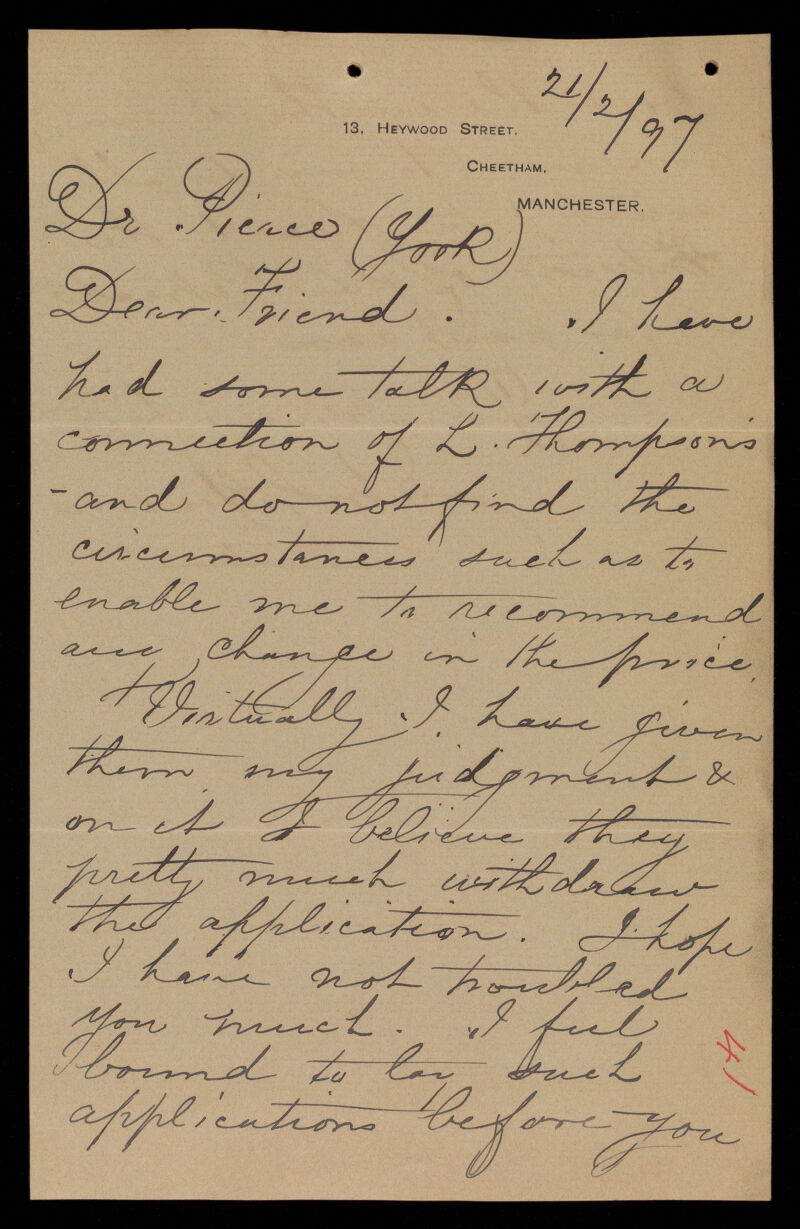 21/2/97
13, HEYWOOD STREET.
CHEETHAM,
MANCHESTER.
Dr Pierce (York)
Dear Friend. I have
had some talk with a
connection of L. Thompson's
- and do not find the
circumstances such as to
enable me to recommend
any change in the price.
Virtually I have given
them my judgment &
on it I believe they
pretty much withdraw
the application. I hope
I have not troubled
you much. I feel
bound to lay such
applications before you